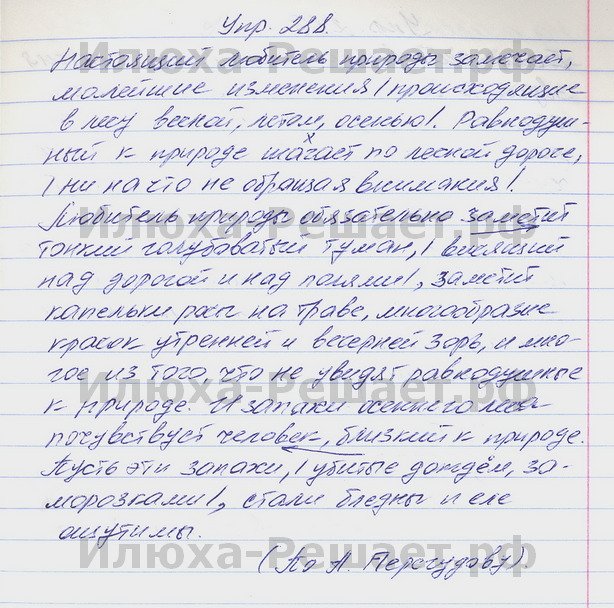 Упр. 288.
Настоящий любитель природы замечает,
малейшие изменения | происходящие
в лесу весной, летом, осенью|. Равнодуш-
ный к природе шагает по лесной дороге,
| ни на что не обращая внимания|.
Любитель природы обязательно заметит
тонкий голубоватый туман, | висящий
над дорогой и над полями|, заметит
капельки росы на траве, многообразие
красок утренней и вечерней зорь, и мно-
гое из того, что не увидят равнодушные
к природе. И запахи осеннего леса
почувствует человек, близкий к природе.
Пусть эти запахи, | убитые дождём, за-
морозками|, стали бледны и еле
ощутимы.
(По А. Перегудову).
Илюха-Решает.рф
Илюха-Решает.рф
Илюха-Решает.рф
Илюха-Решает.рф